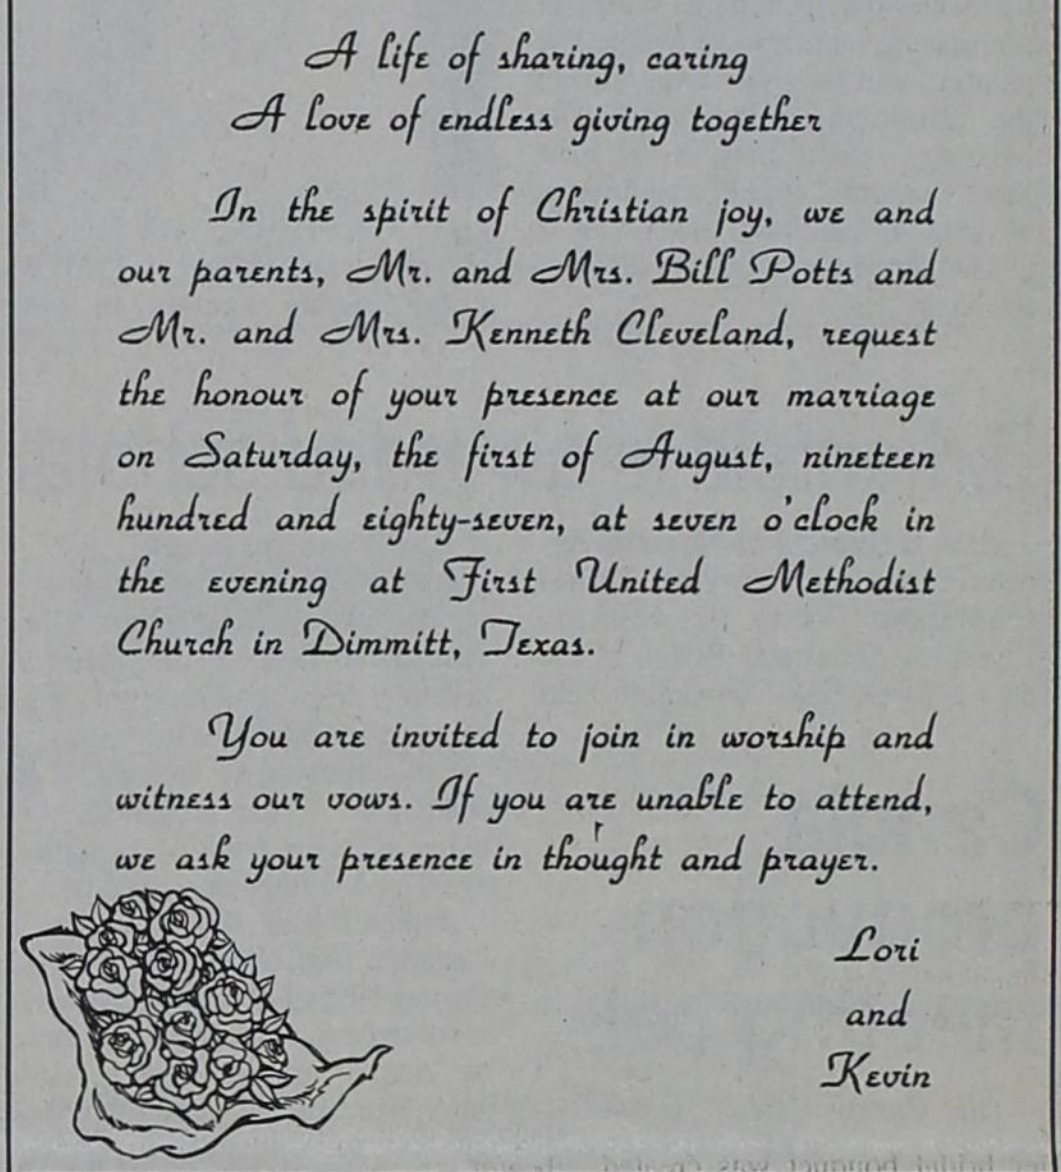 A life of sharing, caring
A love of endless giving together
In the spirit of Christian joy, we and
our parents, Mr. and Mrs. Bill Potts and
Mr. and Mrs. Kenneth Cleveland, request
the honour of your presence at our marriage
on Saturday, the first of August, nineteen
hundred and eighty-seven, at seven o'clock in
the evening at First United Methodist
Church in Dimmitt, Texas.
You are invited to join in worship and
witness our vows. If you are unable to attend,
we ask your presence in thought and prayer.
Lori
and
Kevin